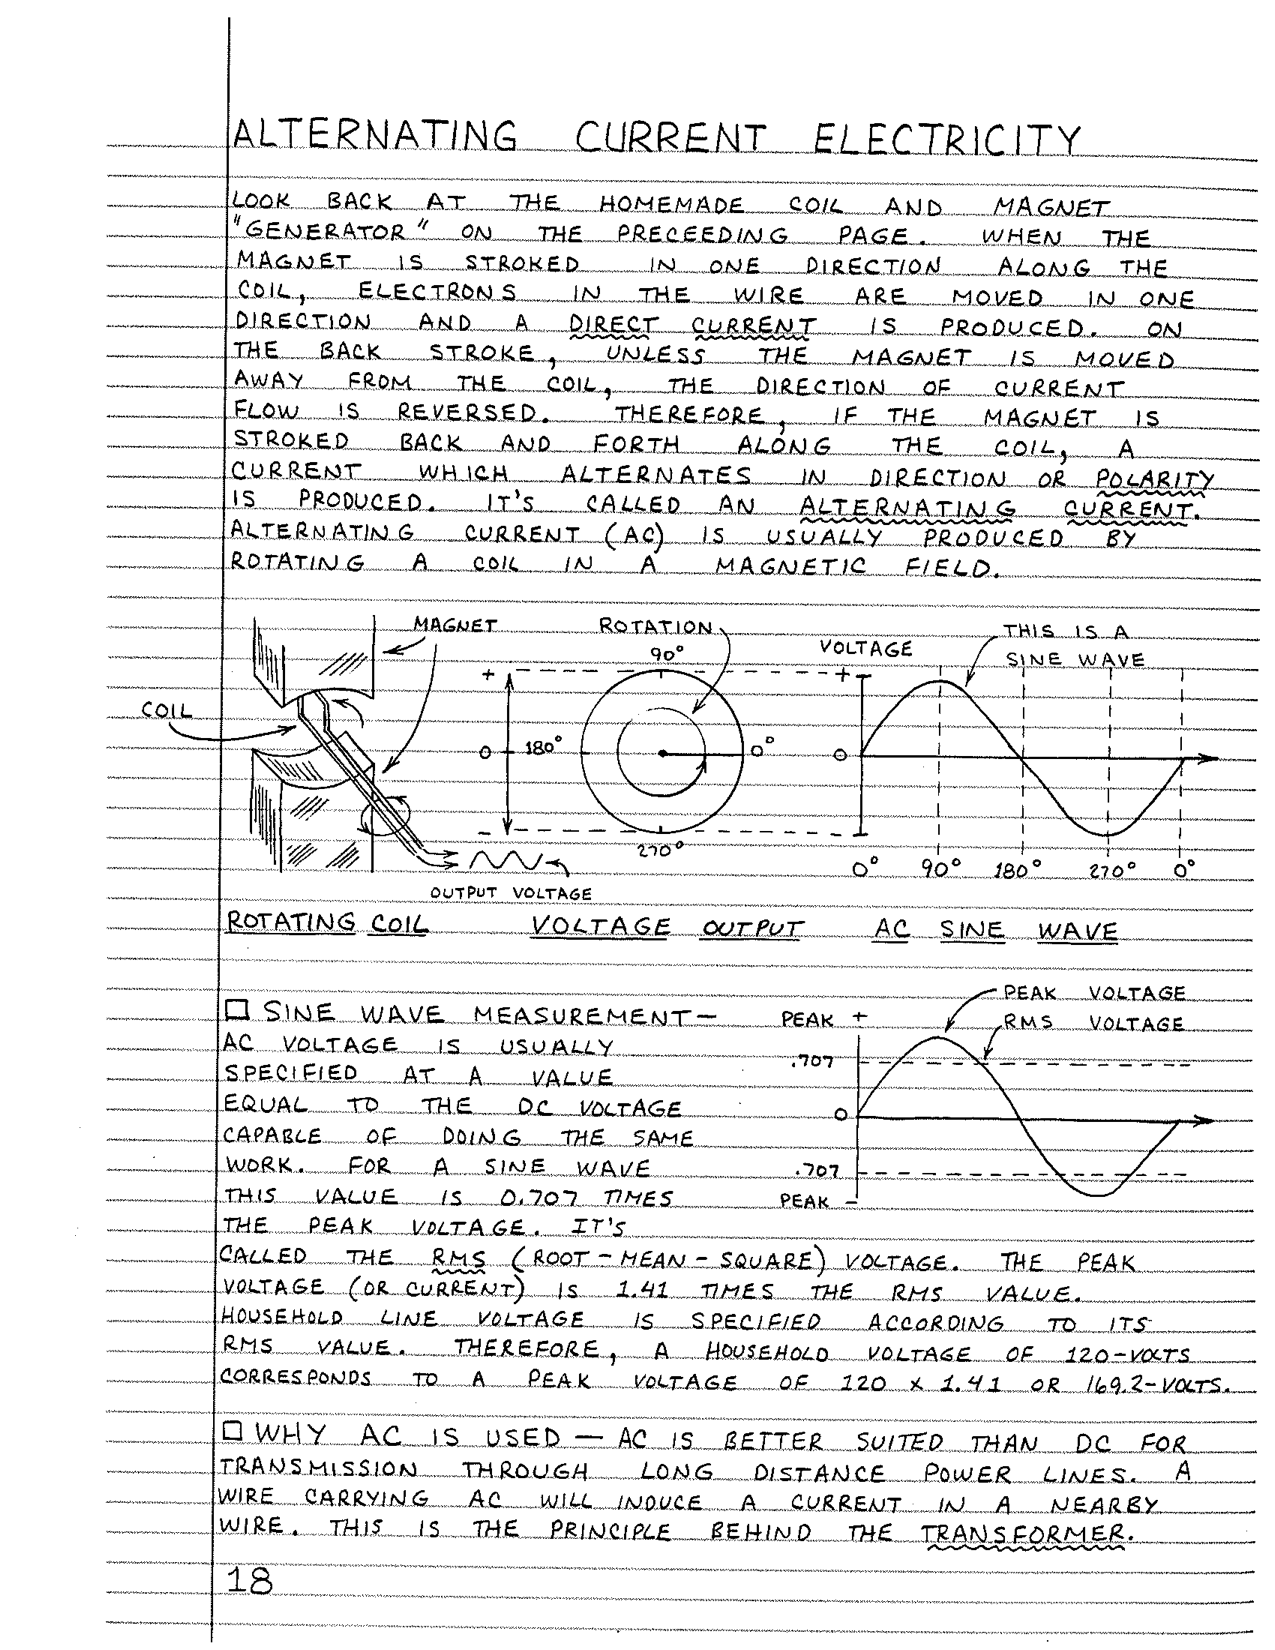 ALTERNATING CURRENT ELECTRICITY
LOOK BACK AT THE HOMEMADE COIL AND MAGNET
"GENERATOR" ON THE PRECEEDING PAGE. WHEN THE
MAGNET IS STROKED IN ONE DIRECTION ALONG THE
COIL, ELECTRONS IN THE WIRE ARE MOVED IN ONE
DIRECTION AND A DIRECT CURRENT IS PRODUCED. ON
THE BACK STROKE, UNLESS THE MAGNET IS MOVED
AWAY FROM THE COIL, THE DIRECTION OF CURRENT
FLOW IS REVERSED. THEREFORE, IF THE MAGNET IS
STROKED BACK AND FORTH ALONG THE COIL, A
CURRENT WHICH ALTERNATES IN DIRECTION OR POLARITY
IS PRODUCED. IT'S CALLED AN ALTERNATING CURRENT.
ALTERNATING CURRENT (AC) IS USUALLY PRODUCED BY
ROTATING A COIL IN A MAGNETIC FIELD.
MAGNET
COIL
OUTPUT VOLTAGE
ROTATING COIL
ROTATION
+
0
-
90°
180°
0°
270°
VOLTAGE OUTPUT
VOLTAGE
THIS IS A
SINE WAVE
+
0
-
0° 90° 180° 270° 0°
AC SINE WAVE
□ SINE WAVE MEASUREMENT—
AC VOLTAGE IS USUALLY
SPECIFIED AT A VALUE
EQUAL TO THE DC VOLTAGE
CAPABLE OF DOING THE SAME
WORK. FOR A SINE WAVE
THIS VALUE IS 0.707 TIMES
THE PEAK VOLTAGE. IT'S
CALLED THE RMS (ROOT-MEAN-SQUARE) VOLTAGE. THE PEAK
VOLTAGE (OR CURRENT) IS 1.41 TIMES THE RMS VALUE.
HOUSEHOLD LINE VOLTAGE IS SPECIFIED ACCORDING TO ITS
RMS VALUE. THEREFORE, A HOUSEHOLD VOLTAGE OF 120-VOLTS
CORRESPONDS TO A PEAK VOLTAGE OF 120 x 1.41 OR 169.2-VOLTS.
PEAK VOLTAGE
RMS VOLTAGE
PEAK +
.707
0
.707
PEAK -
□ WHY AC IS USED — AC IS BETTER SUITED THAN DC FOR
TRANSMISSION THROUGH LONG DISTANCE POWER LINES. A
WIRE CARRYING AC WILL INDUCE A CURRENT IN A NEARBY
WIRE. THIS IS THE PRINCIPLE BEHIND THE TRANSFORMER.
18